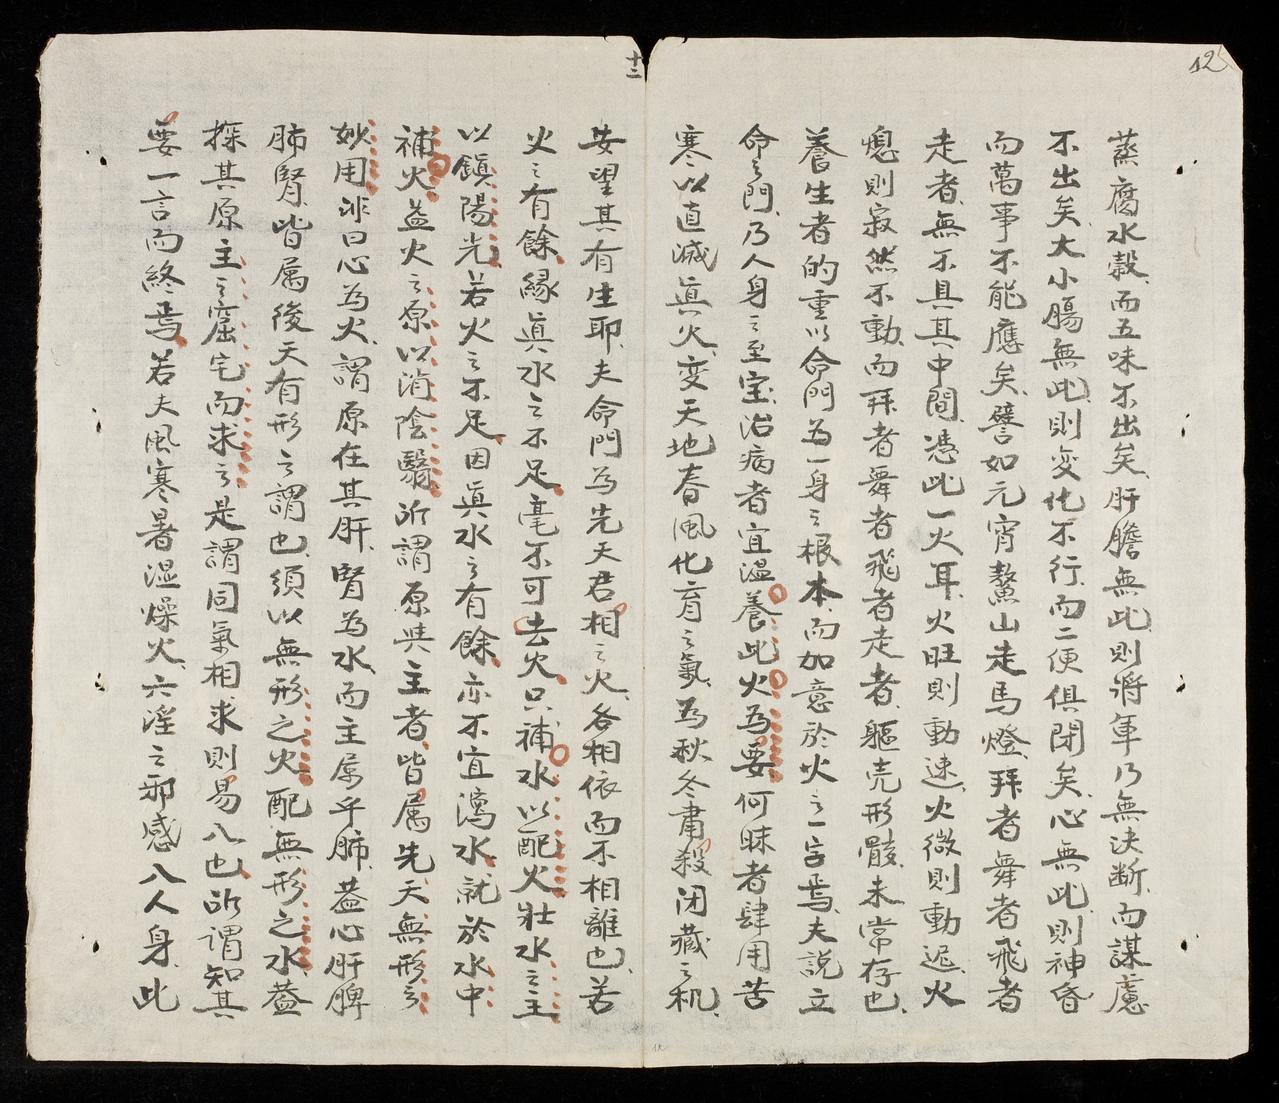 12
蒸腐水穀、而五味不出矣、肝膽無此、則將軍乃無决斷、而謀慮
不出矣、大小腸無此、則变化不行、而二便俱閉矣、心無此、則神昏
而萬事不能應矣、譬如元宵鰲山走馬燈、拜者舞者飛者
走者、無不具其中間、憑此一火耳、火旺則動速、火微則動遲、火
熄則寂然不動、而拜者舞者飛者走者、軀壳形骸、未常存也、
養生者的重以命門為一身之根本、而加意於火之一字焉、夫說立
命之門、乃人身之至宝、治病者宜温養此火為要、何昧者肆用苦
寒、以直滅眞火、变天地春風化育之氣、為秋冬肅殺闭藏之机、
十二
安望其有生耶、夫命門為先天君相之火、各相依而不相離也、若
火之有餘、緣眞水之不足、毫不可去火、只補水以配火、壯水之主
以鎮陽光、若火之不足、因眞水之有餘、亦不宜瀉水、就於水中
補火、益火之原、以消陰翳、所謂原與主者、皆属先天無形之
妙用、非曰心為火、謂原在其肝、腎為水、而主属乎肺、盖心肝脾
肺腎、皆属後天有形之謂也、須以無形之火、配無形之水、盖
探其原主之窟宅而求之、是謂同氣相求則易入也、所謂知其
要一言而終焉、若夫風寒暑湿燥火、六淫之邪感入人身、此